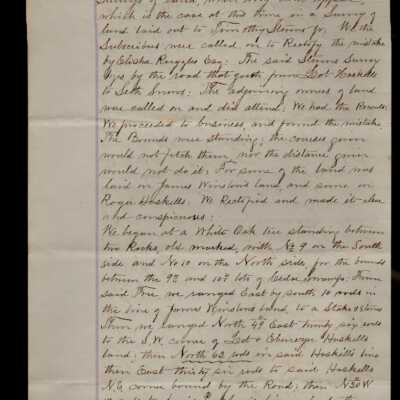 which is the case at this time on a Survey of
land laid out to Timothy Stevens Jr, We the
Subscribers were called on to Rectify the mistake
by Elisha Ruggles Esq: The said Stevens Survey
lyes by the road that goeth from Lot Haskells
to Seth Snows: The adjoining owners of land
were called on and did attend; We had the Records
We proceeded to business, and found the mistake.
The Bounds were standing; the courses given
would not fetch them, nor the distance given
would not do it; For some of the land was
laid on James Winslows land, and some on
Roger Haskells. We Rectified and made it clear
and conspicuous:
We began at a White Oak tree standing between
two Rocks, old marked, with No 9 on the South
side and No 10 on the North side, for the bounds
between the 9th and 10th lots of Cedar swamp: From
said Tree we ranged East by south 10 rods in
the line of James Winslows land, to a Stake & stones
Then we ranged North 49 East thirty six rods
to the S.W. corner of Lot & Ebenezer Haskells
land; then North 62 rods in said Haskells line
then East thirty six rods to said Haskells
N.E. corner bound by the Road; then N 20 W